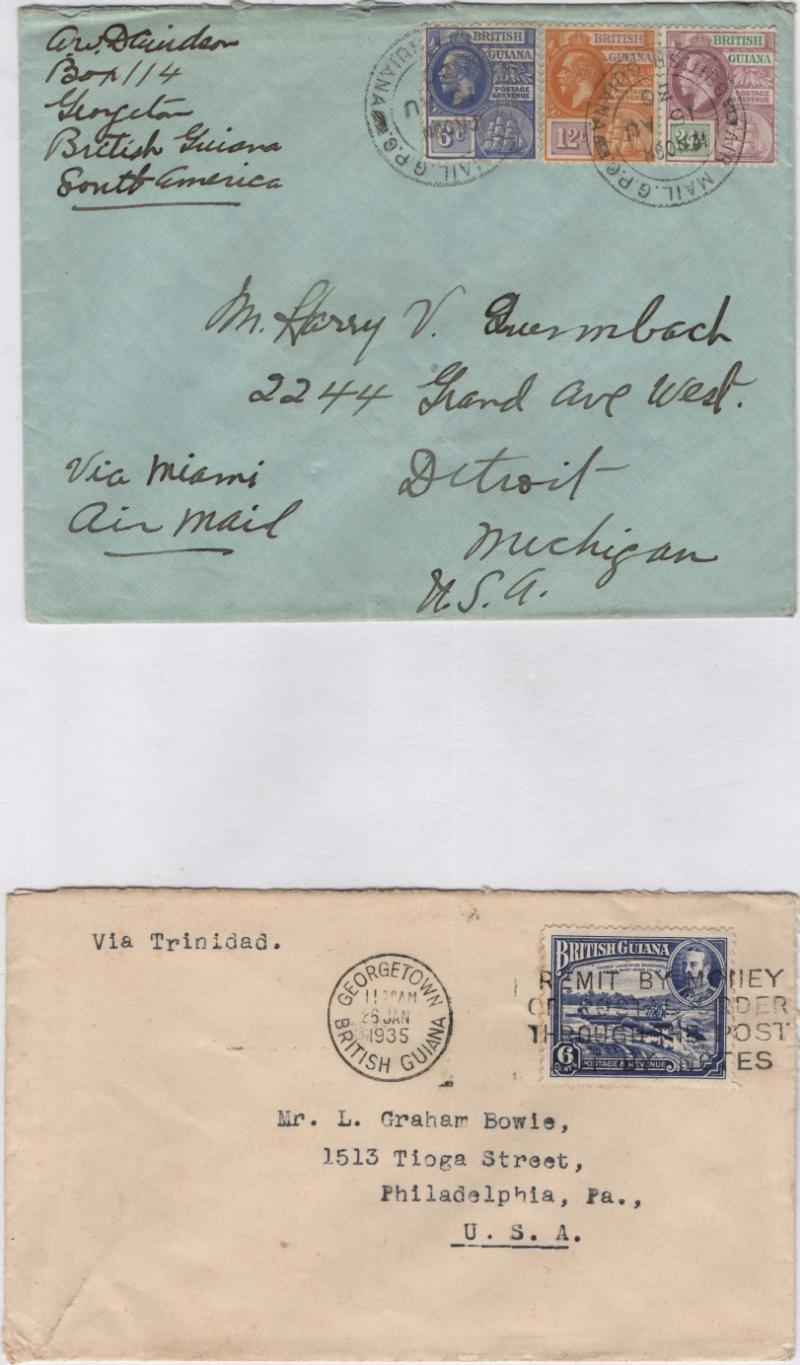 Box 114
Georgeton
British Guiana
South America
BRITISH GUIANA
POSTAGE & REVENUE
6c
BRITISH GUIANA
POSTAGE & REVENUE
12
BRITISH GUIANA
POSTAGE & REVENUE
AIR MAIL. G.P.O
GUIANA
AU
AIR MAIL. G.P.O
GUIANA
AU
M. Harry V.
2244 Grand Ave West.
Via Miami
Air Mail
Detroit
Michigan
U.S.A.
Via Trinidad.
GEORGETOWN
AM
26 JAN
1935
BRITISH GUIANA
BRITISH GUIANA
6
CENTS
POSTAGE & REVENUE
REMIT BY MONEY
OR POSTAL ORDER
THROUGH THE POST
NOTES
Mr. L. Graham Bowie,
1513 Tioga Street,
Philadelphia, Pa.,
U. S. A.